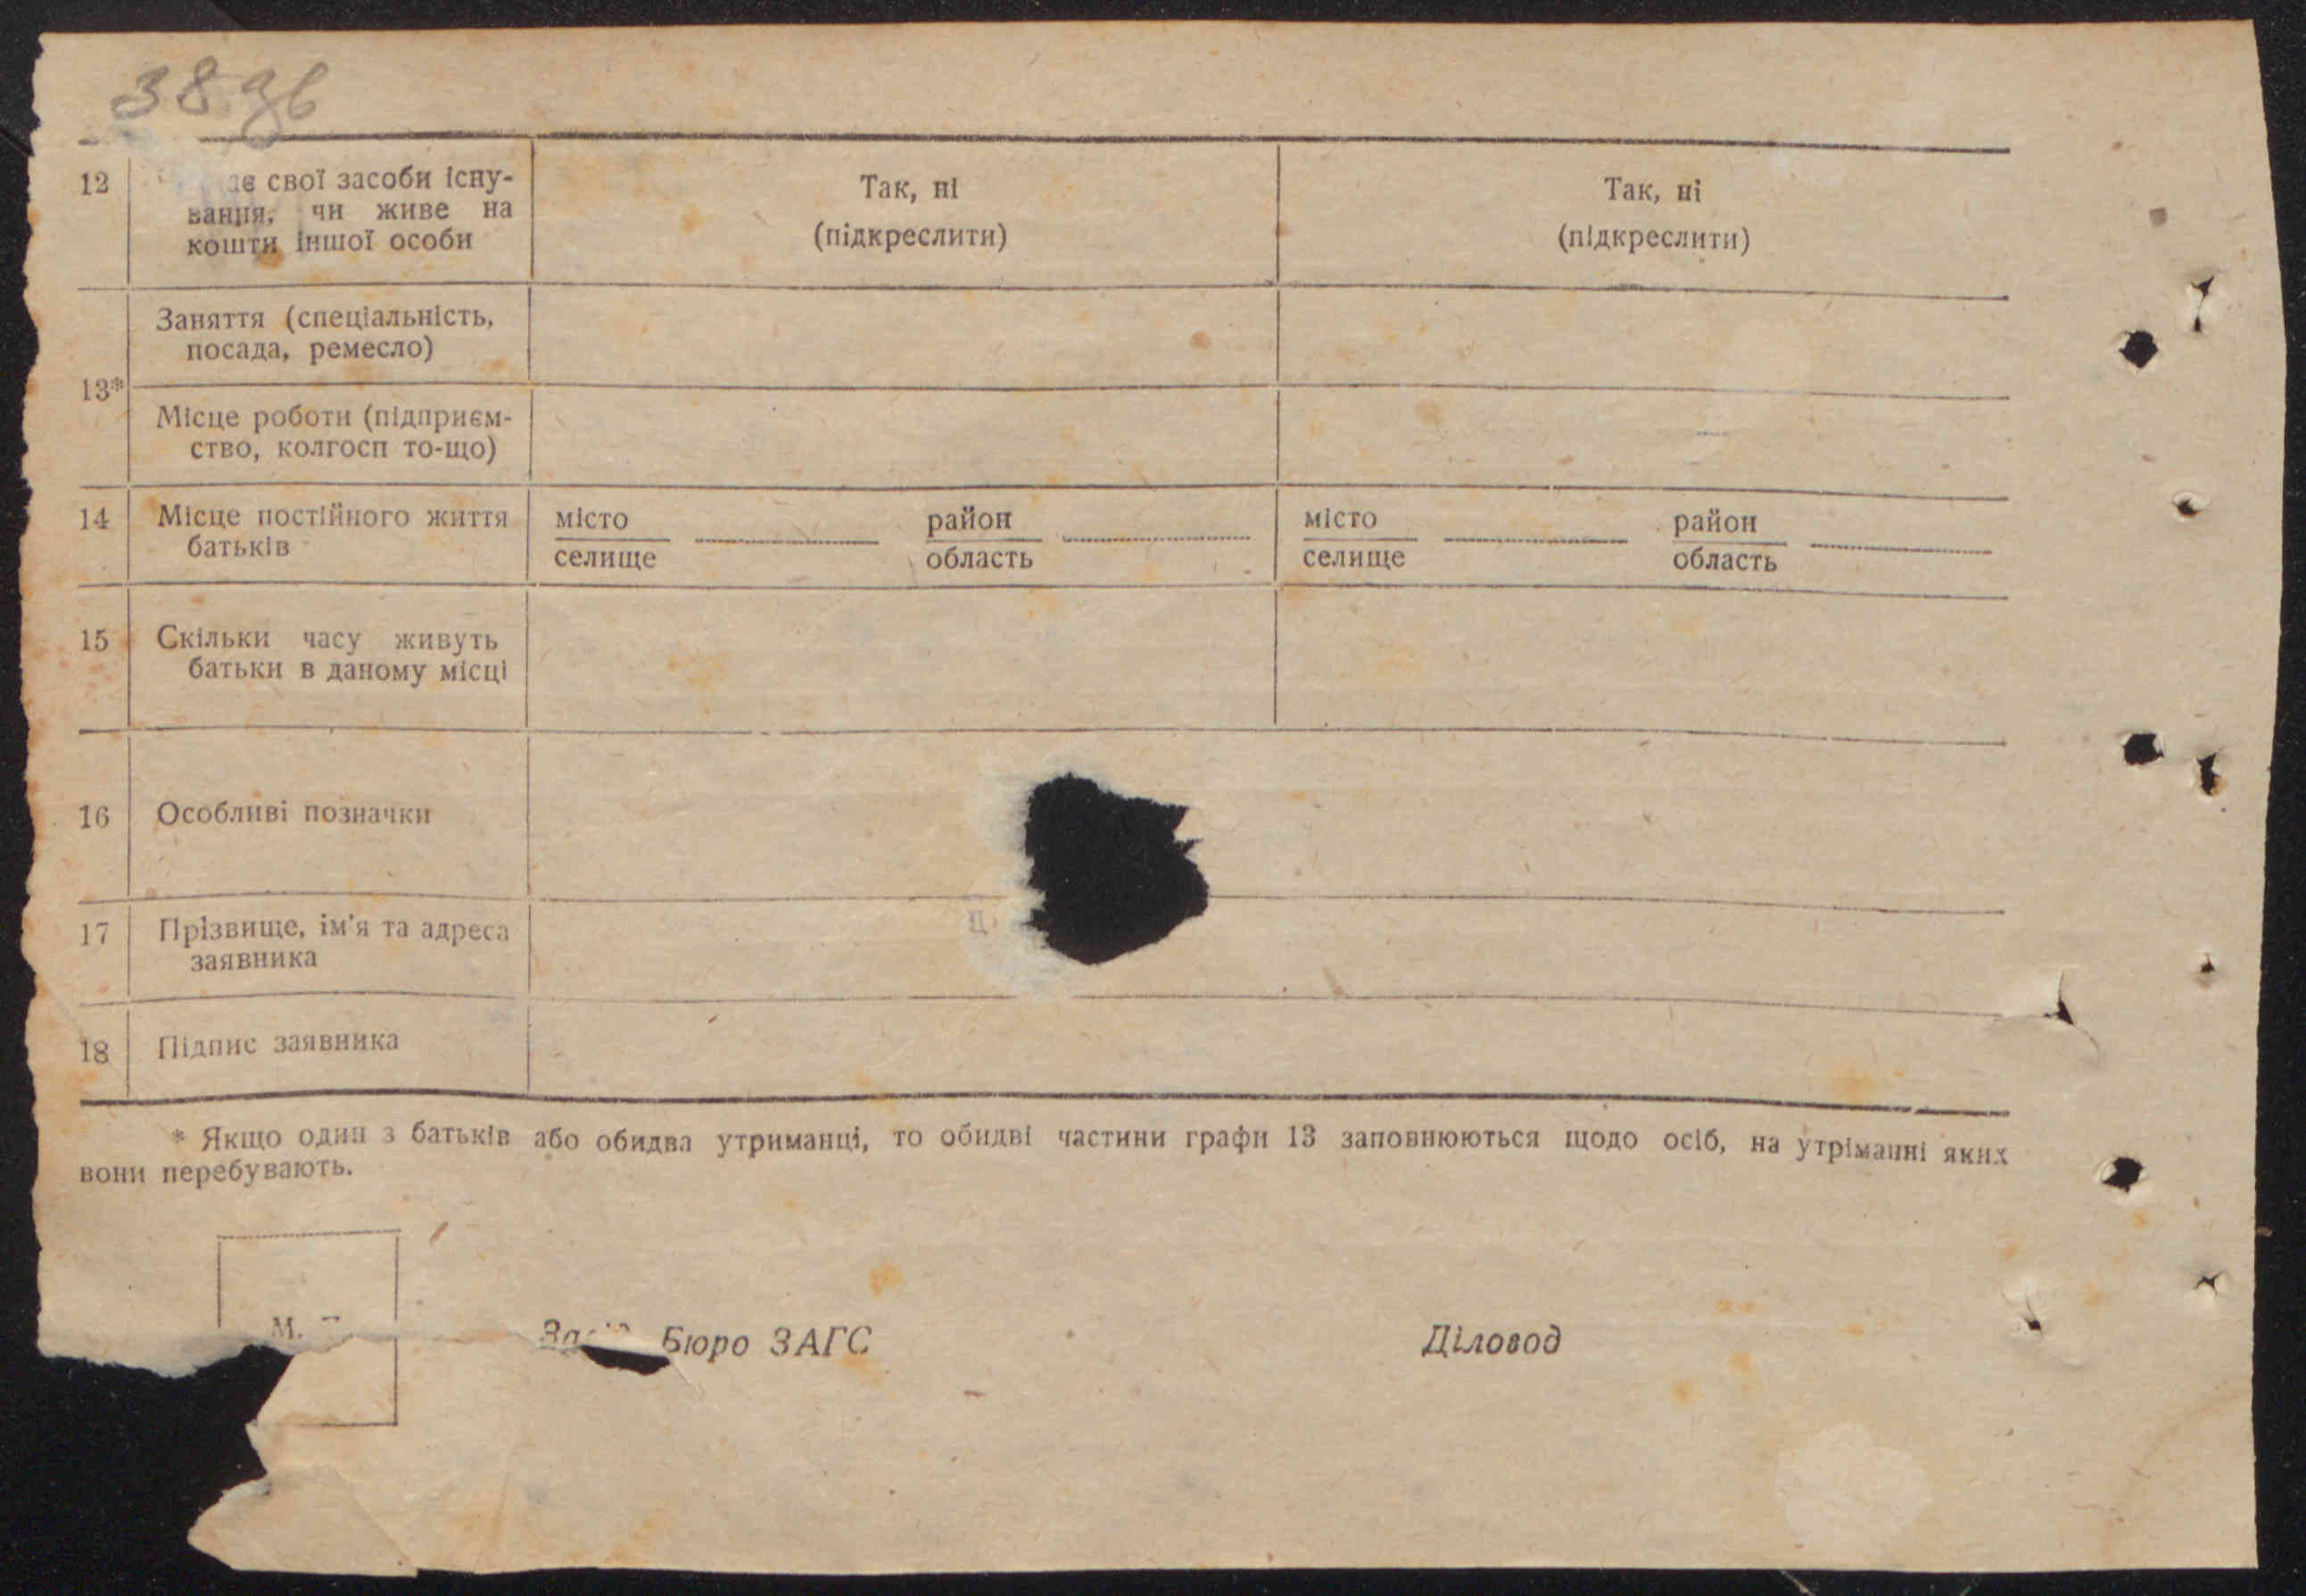 38 зв
12
свої засоби існу-
вання, чи живе на
кошти іншої особи
Так, ні
(підкреслити)
Так, ні
(підкреслити)
13*
Заняття (спеціальність,
посада, ремесло)
Місце роботи (підприєм-
ство, колгосп то-що)
14
Місце постійного життя
батьків
місто
селище
район
область
місто
селище
район
область
15
Скільки часу живуть
батьки в даному місці
16
Особливі позначки
17
Прізвище, ім'я та адреса
заявника
18
Підпис заявника
* Якщо один з батьків або обидва утриманці, то обидві частини графи 13 заповнюються щодо осіб, на утріманні яких
вони перебувають.
М.
Бюро ЗАГС
Діловод